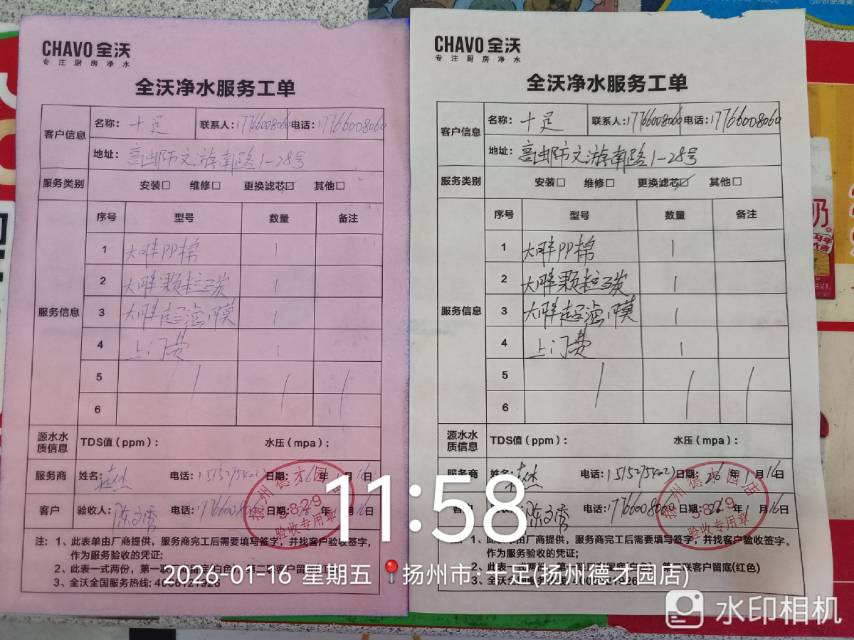 CHAVO 全沃
专注厨房净水
全沃净水服务工单
客户信息
名称：十足 联系人：17766008060 电话：17766008060
地址：高邮市文游南路1-28号
服务类别 安装□ 维修□ 更换滤芯☑ 其他□
服务信息
序号 型号 数量 备注
1 大胖PP棉 1
2 大胖颗粒碳 1
3 大胖超滤膜 1
4 上门费 1
5
6
源水水质信息 TDS值（ppm）： 水压（mpa）：
服务商 姓名： 电话： 日期： 年1月16日
客户 验收人： 电话： 日期： 年1月16日
注：1、此表单由厂商提供，服务商完工后需要填写签字，并找客户验收签字，
作为服务验收的凭证；
2、此表一式两份，第一
3、全沃全国服务热线：
扬州德才园店
5829
验收专用章
CHAVO 全沃
专注厨房净水
全沃净水服务工单
客户信息
名称：十足 联系人：17766008060 电话：17766008060
地址：高邮市文游南路1-28号
服务类别 安装□ 维修□ 更换滤芯☑ 其他□
服务信息
序号 型号 数量 备注
1 大胖PP棉 1
2 大胖颗粒碳 1
3 大胖超滤膜 1
4 上门费 1
5
6
源水水质信息 TDS值（ppm）： 水压（mpa）：
服务商 电话： 日期：26年1月16日
客户 电话： 日期： 年1月16日
注：1、此表单由厂商提供，服务商完工后需要填写签字，并找客户验收签字，
作为服务验收的凭证；
2、此表一 客户留底(红色)
3、全沃全国服务热线：
扬州德才园店
5829
验收专用章
11:58
2026-01-16 星期五 扬州市·十足(扬州德才园店)
水印相机